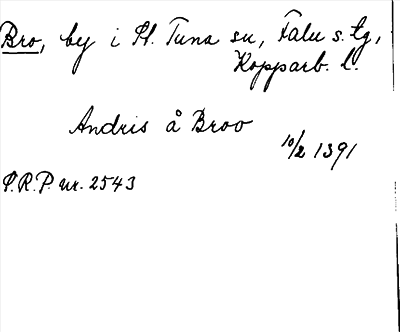 Bro, by i St. Tuna sn, Falu s. tg,
Kopparb. l.
Andris å Broo
10/2 1391
S.R.P. nr. 2543